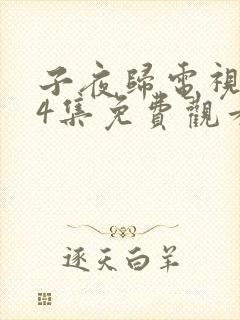 子夜歸電視
4集免費觀
逐天白羊